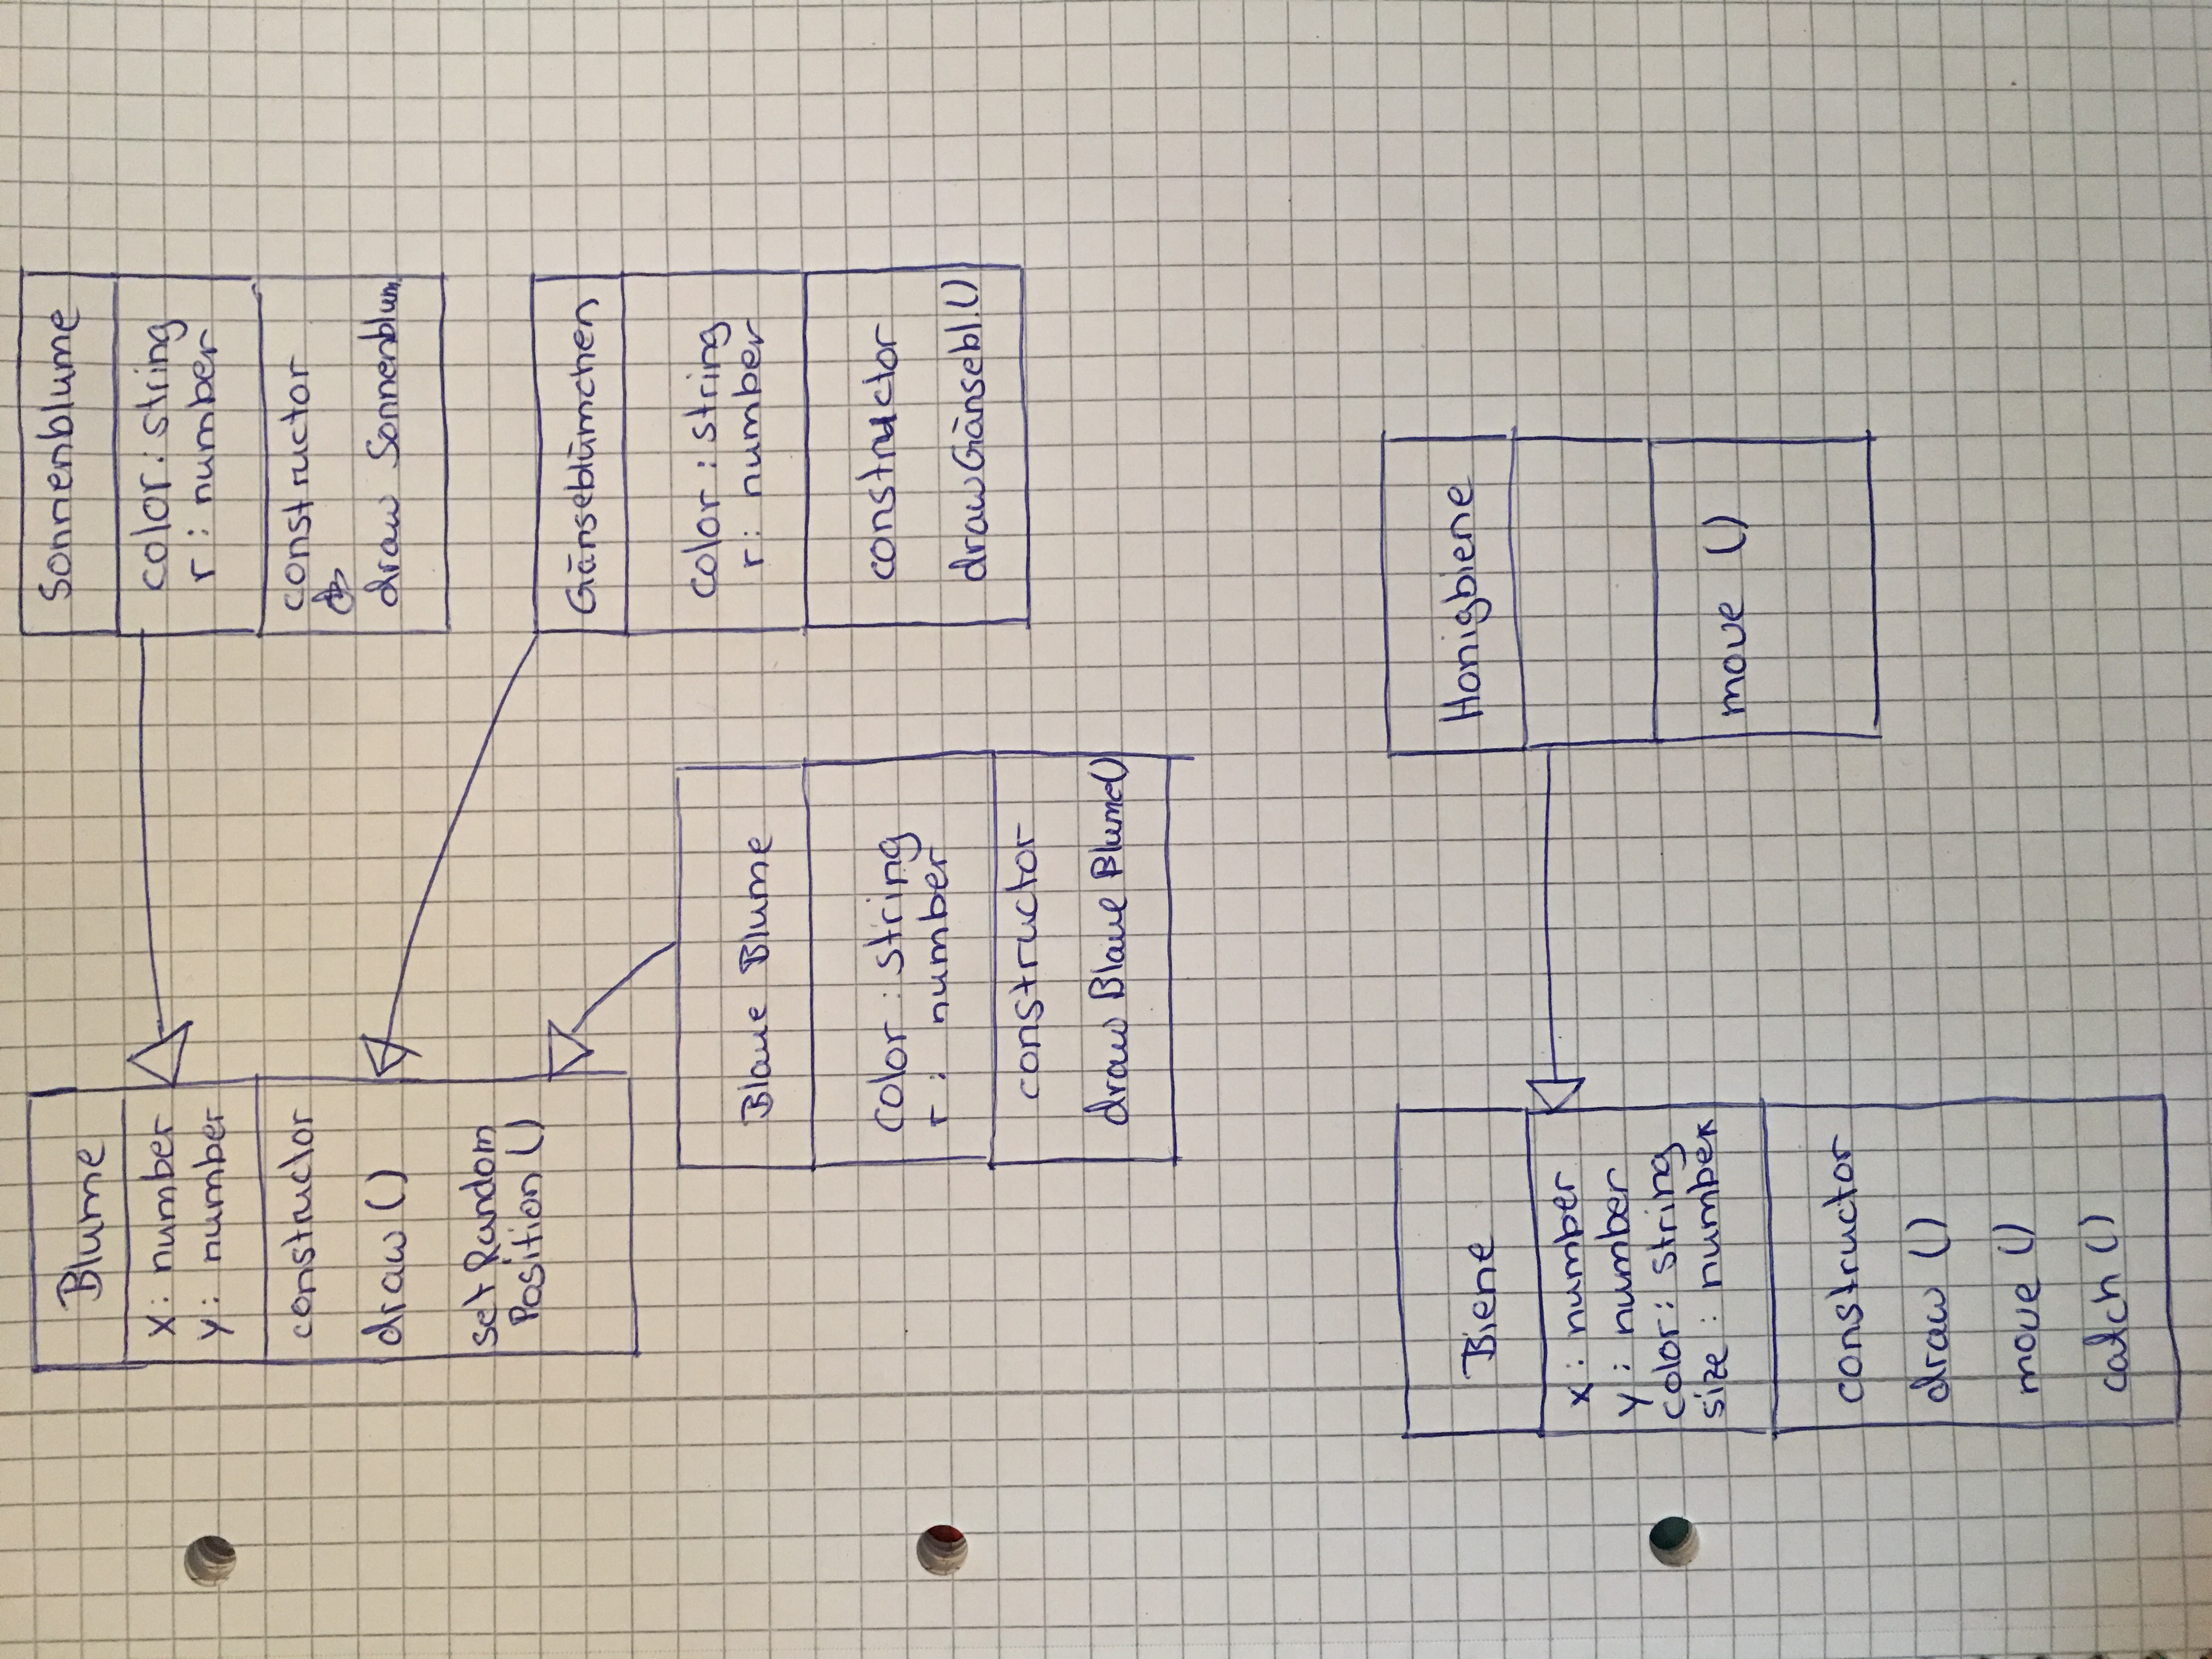 Blume
x: number
y: number
constructor
draw ()
set Random
Position ()
Sonnenblume
color: string
r : number
constructor
draw Sonnenblum
Gänseblümchen
color : string
r: number
constructor
draw Gänsebl.()
Blaue Blume
color : string
r : number
constructor
draw Blaue Blume()
Biene
x : number
y : number
color: string
size : number
constructor
draw ()
move ()
catch ()
Honigbiene
move ()